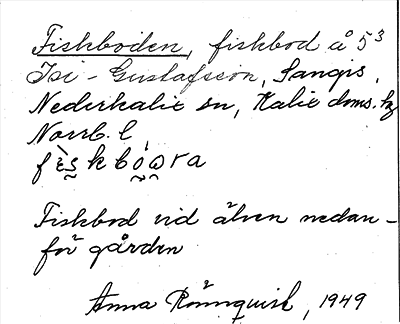 Fiskboden, fiskbod å 5³
Isi-Gustafsson, Sangis,
Nederkalix sn, Kalix doms. hg
Norrb. l.
Fiskbod vid älven nedan-
för gården
Anna Rönnquist, 1949